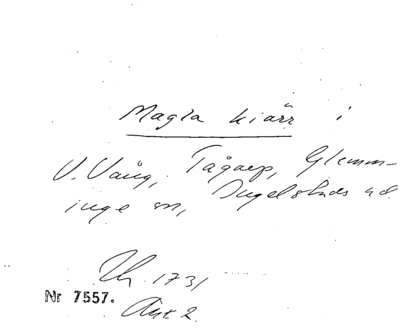 Magla kiärr i
V. Vång, Tågarp, Glemm-
inge sn, Ingelstads hd
1731
Nr 7557.
Akt 2.